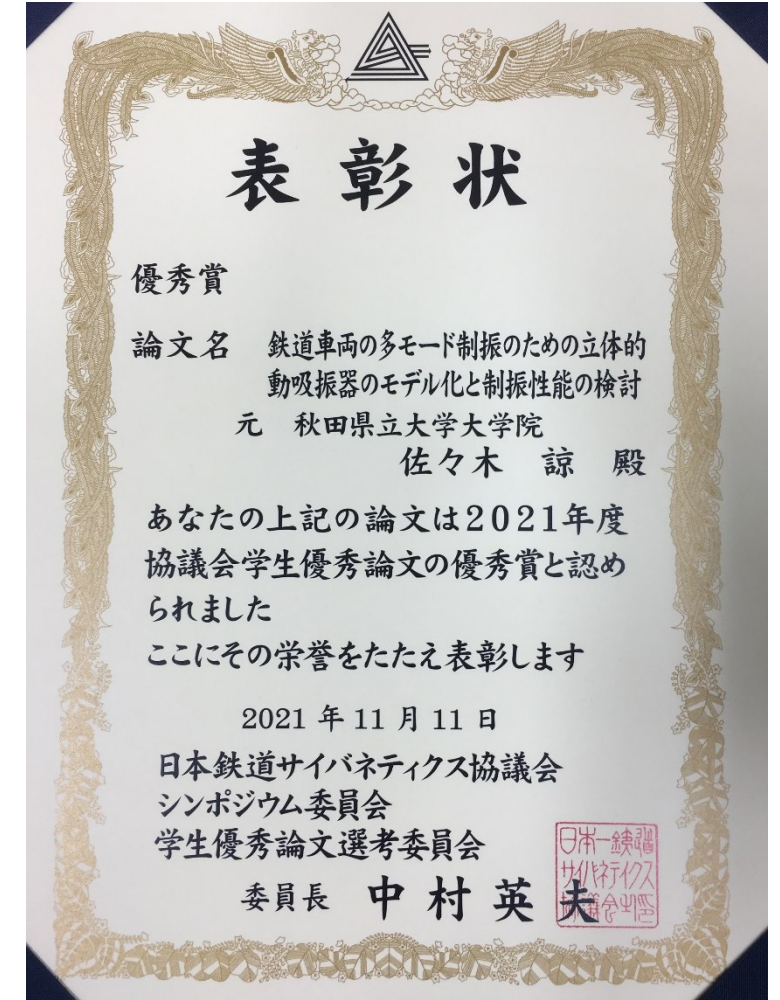 表彰状
優秀賞
論文名 鉄道車両の多モード制振のための立体的
動吸振器のモデル化と制振性能の検討
元 秋田県立大学大学院
佐々木 諒 殿
あなたの上記の論文は2021年度
協議会学生優秀論文の優秀賞と認め
られました
ここにその栄誉をたたえ表彰します
2021年11月11日
日本鉄道サイバネティクス協議会
シンポジウム委員会
学生優秀論文選考委員会
委員長 中村英夫